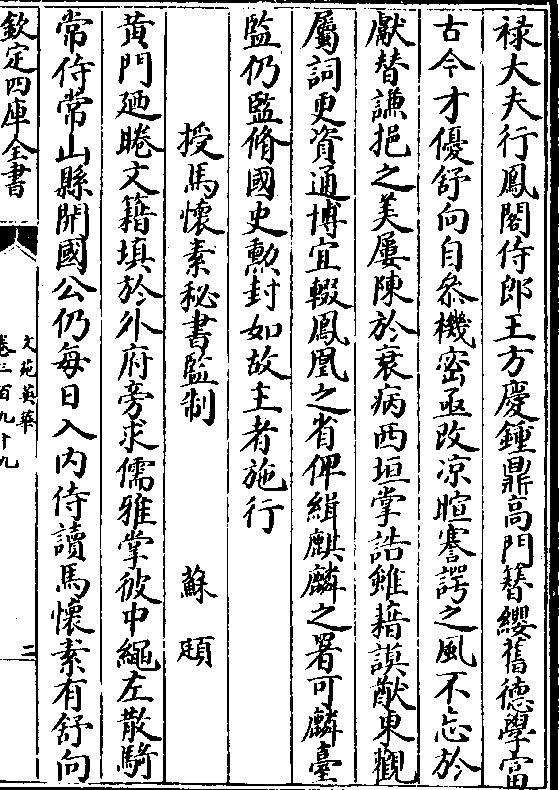 禄大夫行鳳閣侍郎王方慶鍾鼎高門簪纓舊德學富
古今才優舒向自叅機密亟改凉暄謇諤之風不忘於
獻替謙挹之美屢陳於衰病西垣掌誥雖藉謨猷東觀
屬詞更資通博宜輟鳳凰之省俾緝麒麟之署可麟臺
監仍監脩國史勲封如故主者施行
授馬懷素秘書監制 蘇頲
黄門廼睠文籍填於外府旁求儒雅掌彼中繩左散騎
常侍常山縣開國公仍每日入内侍讀馬懷素有舒向
欽定四庫全書
文苑英華
卷三百九十九
二